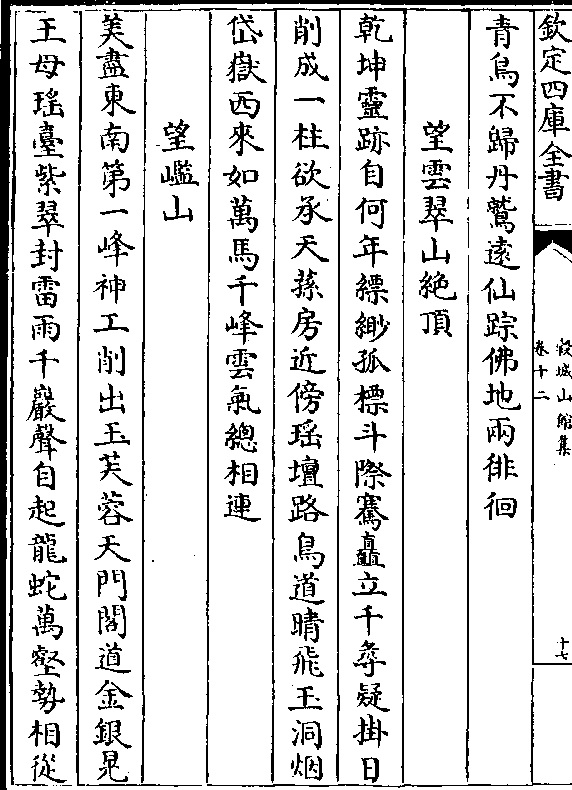 欽定四庫全書
榖城山館集
卷十二
十七
青鳥不歸丹鷲遠仙踪佛地兩徘徊
望雲翠山絶頂
乾坤靈跡自何年縹緲孤標斗際騫矗立千尋疑掛日
削成一柱欲承天蓀房近傍瑶壇路鳥道晴飛玉洞烟
岱嶽西來如萬馬千峰雲氣總相連
望嶋山
美盡東南第一峰神工削出玉芙蓉天門閣道金銀晃
王母瑶臺紫翠封雷雨千巖聲自起龍蛇萬壑勢相從